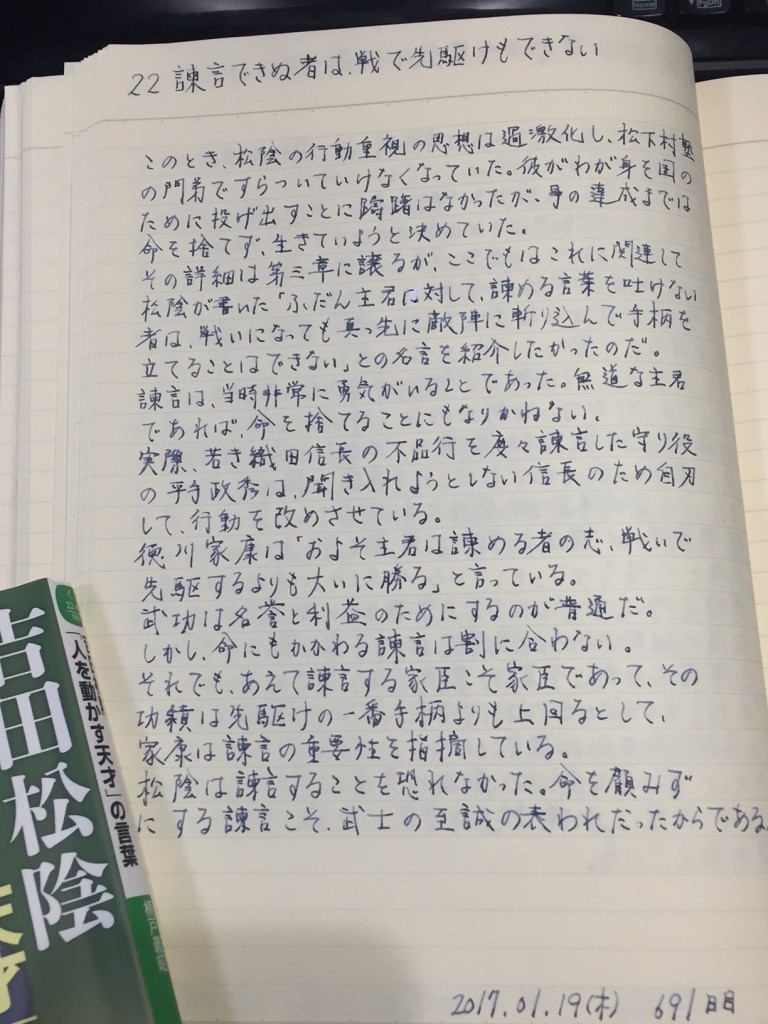 22 諫言できぬ者は、戦で先駆けもできない
このとき、松陰の行動重視の思想は過激化し、松下村塾
の門弟ですらついていけなくなっていた。彼がわが身を国の
ために投げ出すことに躊躇はなかったが、事の達成までは
命を捨てず、生きていようと決めていた。
その詳細は第三章に譲るが、ここでもはこれに関連して
松陰が書いた「ふだん主君に対して、諫める言葉を吐けない
者は、戦いになっても真っ先に敵陣に斬り込んで手柄を
立てることはできない」との名言を紹介したかったのだ。
諫言は、当時非常に勇気がいることであった。無道な主君
であれば、命を捨てることにもなりかねない。
実際、若き織田信長の不品行を度々諫言した守り役
の平手政秀は、聞き入れようとしない信長のため自刃
して、行動を改めさせている。
徳川家康は「およそ主君は諫める者の志、戦いで
先駆するよりも大いに勝る」と言っている。
武功は名誉と利益のためにするのが普通だ。
しかし、命にもかかわる諫言は割に合わない。
それでも、あえて諫言する家臣こそ家臣であって、その
功績は先駆けの一番手柄よりも上回るとして、
家康は諫言の重要性を指摘している。
松陰は諫言することを恐れなかった。命を顧みず
にする諫言こそ、武士の至誠の表われだったからである。
2017.01.19(木) 691日目
吉田松陰
「人を動かす天才」の言葉